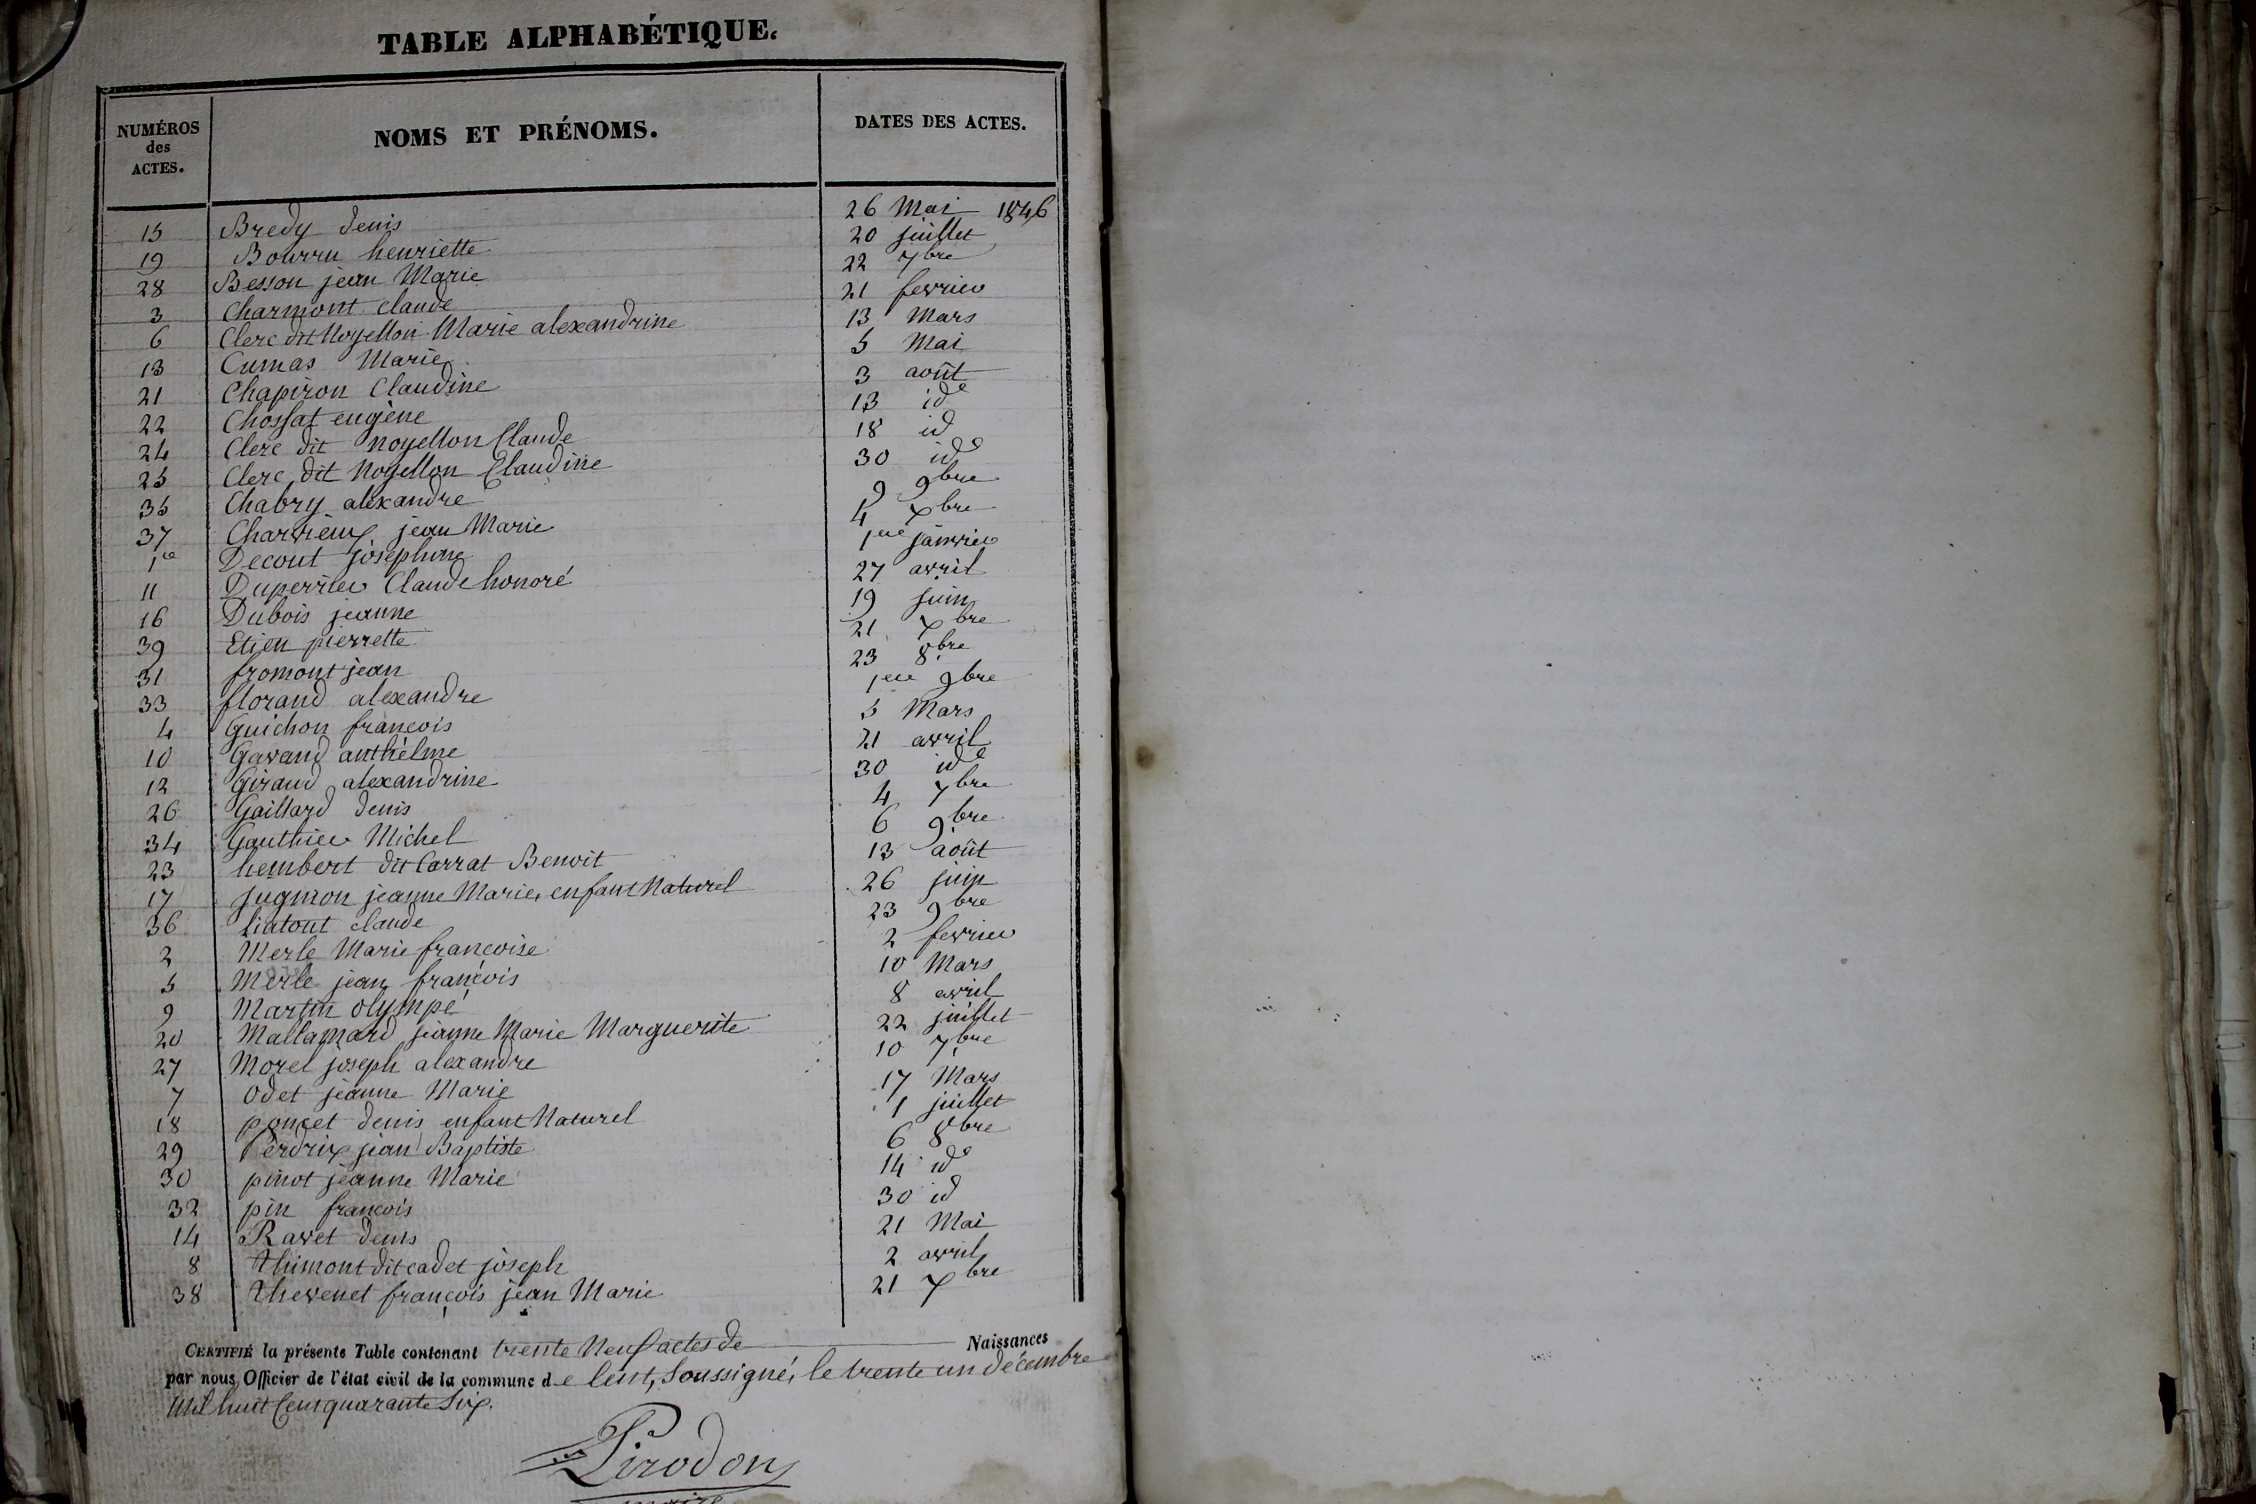 TABLE ALPHABÉTIQUE.
NUMÉROS des ACTES. NOMS ET PRÉNOMS. DATES DES ACTES.
15 Bredy denis 26 Mai 1846
19 Bourru henriette 20 juillet
28 Besson jean Marie 22 7bre
3 Charmont claude 21 fevrier
6 Clerc dit Noyellon Marie alexandrine 13 Mars
13 Cumas Marie 5 Mai
21 Chapiron Claudine 3 août
22 Chossat eugène 13 ide
24 Clerc dit noyellon Claude 18 id
25 Clerc dit Noyellon Claudine 30 ide
35 Chabry alexandre 9 9bre
37 Charvieux jean Marie 4 xbre
1er Decout josephine 1er janvier
11 Duperrier Claude honoré 27 avril
16 Dubois jeanne 19 juin
39 Etien pierrette 21 xbre
31 fromont jean 23 8bre
33 florand alexandre 1er 9bre
4 Guichon françois 5 Mars
10 Gavand anthelme 21 avril
12 Giraud alexandrine 30 ide
26 Gaillard denis 4 7bre
34 Gauthier Michel 6 9bre
23 hembert dit Carrat Benoit 13 août
17 jugnon jeanne Marie, enfant Naturel 26 juin
36 liatout claude 23 9bre
2 Merle Marie françoise 2 fevrier
5 Merle jean françois 10 Mars
9 Martin olympe 8 avril
20 Mallamard jeanne Marie Marguerite 22 juillet
27 Morel joseph alexandre 10 7bre
7 Odet jeanne Marie 17 Mars
18 poncet denis enfant Naturel 1 juillet
29 Perdrix jean Baptiste 6 8bre
30 pinot jeanne Marie 14 ide
32 pin françois 30 id
14 Ravet denis 21 Mai
8 thimont dit cadet joseph 2 avril
38 thevenet françois jean Marie 21 xbre
CERTIFIÉ la présente Table contenant trente Neuf actes de Naissances
par nous, Officier de l'état civil de la commune de lent, Soussigné, le trente un décembre
Mil huit Cent quarante Six.
Pirodon
maire